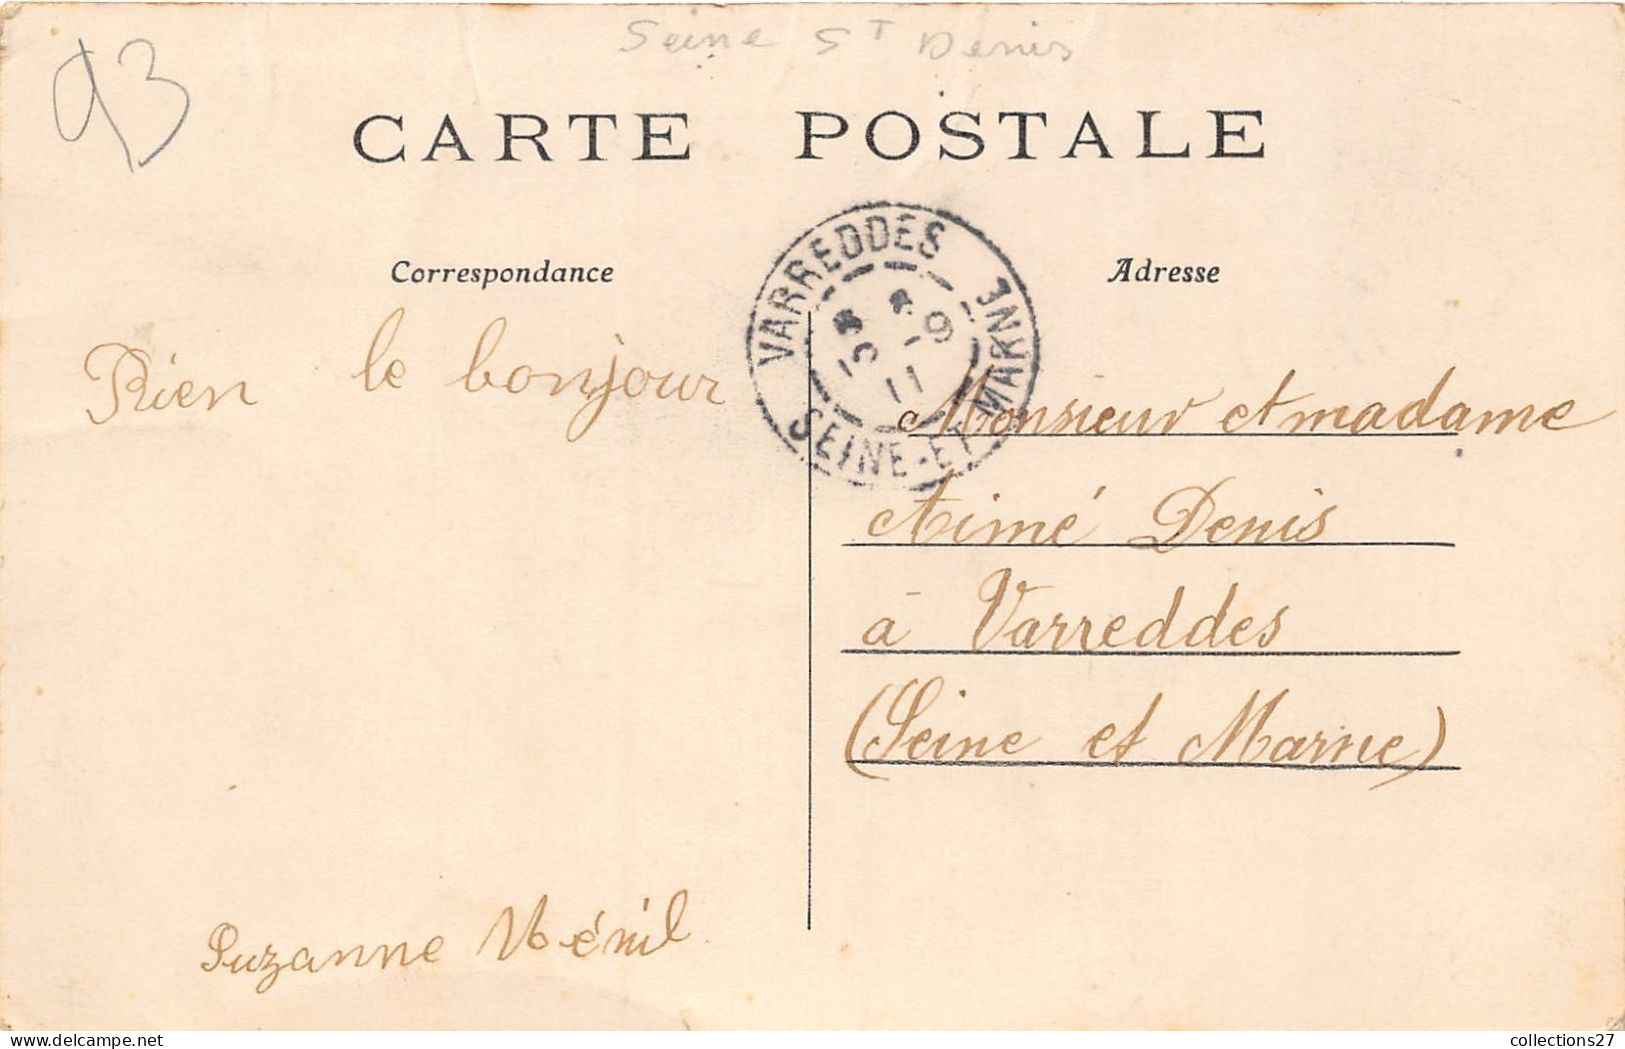 Seine St Denis
93
CARTE POSTALE
Correspondance
Adresse
VARREDDES
SEINE-ET-MARNE
* *
15 -9
11
Bien le bonjour
Suzanne Ménil
Monsieur et madame
Aimé Denis
à Varreddes
(Seine et Marne)
delcampe.net
collections27